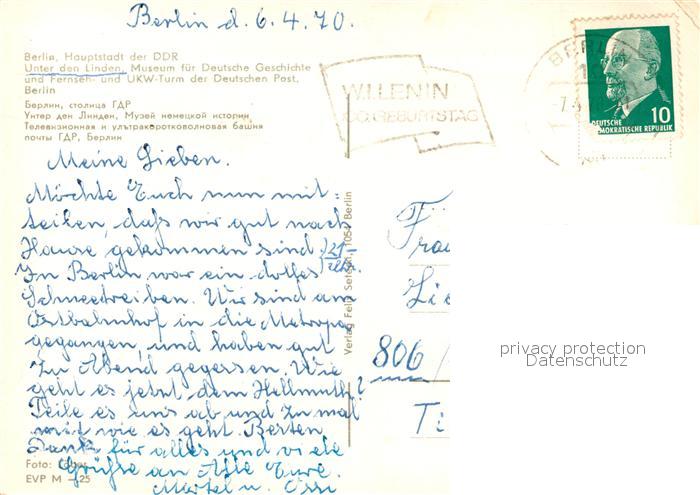 Berlin d. 6.4.70.
Berlin, Hauptstadt der DDR
Unter den Linden, Museum für Deutsche Geschichte
und Fernseh- und UKW-Turm der Deutschen Post,
Berlin
Берлин, столица ГДР
Унтер ден Линден, Музей немецкой истории
Телевизионная и ультракоротковолновая башня
почты ГДР, Берлин
W.I.LENIN
100. GEBURTSTAG
BERLIN
10
DEUTSCHE
DEMOKRATISCHE REPUBLIK
Meine Lieben.
Möchte Euch nun mit=
teilen, daß wir gut nach
Hause gekommen sind
21-
Uhr.
In Berlin war ein dolles
Schneetreiben. Wir sind am
Ostbahnhof in die Metropa
gegangen, und haben gut
zu Abend gegessen. Wie
geht es jetzt dem Hellmuth?
Teile es uns ab und zu mal
mit wie es geht. Besten
Dank für alles und viele
Grüße an Alle Eure.
Märtel u. Ossi
Foto:
EVP M -,25
Verlag Felix Setecki, 1054 Berlin
Frau
Lie
806
privacy protection
Datenschutz